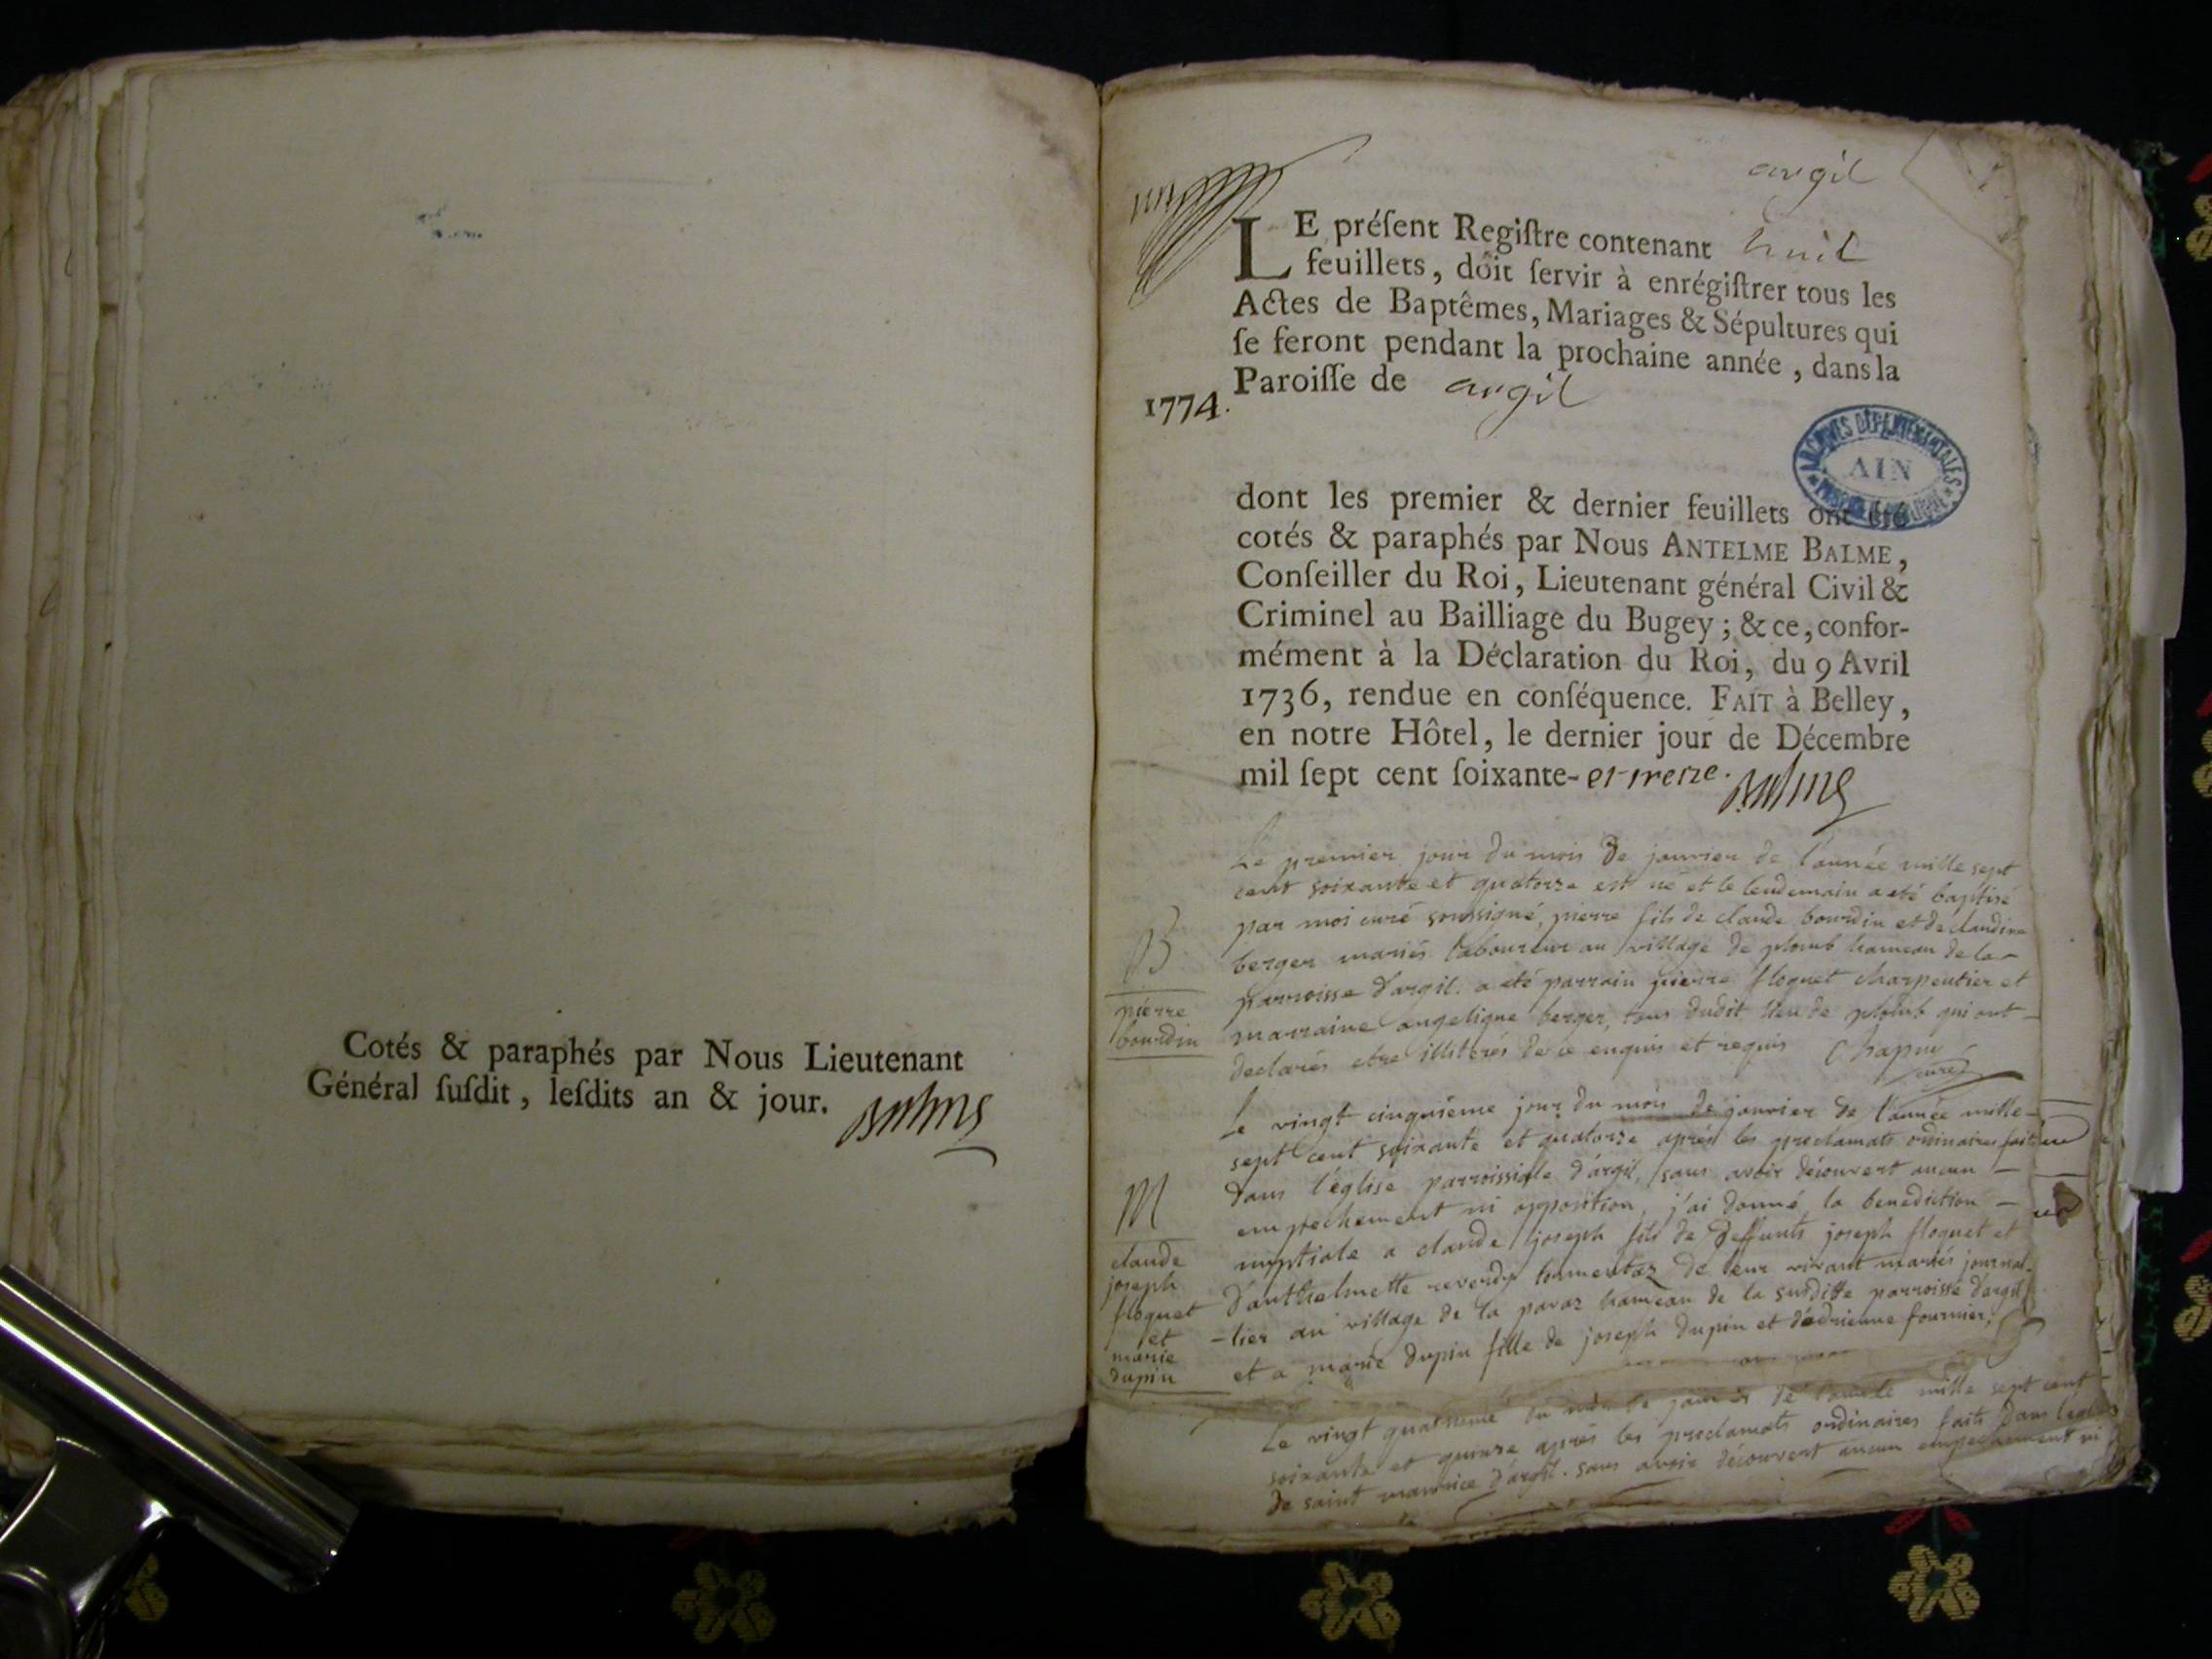 Cotés & paraphés par Nous Lieutenant
Général ſuſdit, leſdits an & jour.
Balme
argil
LE préſent Regiſtre contenant huit
feuillets, doit ſervir à enrégiſtrer tous les
Actes de Baptêmes, Mariages & Sépultures qui
ſe feront pendant la prochaine année, dans la
Paroiſſe de argil
1774.
ARCHIVES DÉPARTEMENTALES
AIN
dont les premier & dernier feuillets ont été
cotés & paraphés par Nous ANTELME BALME,
Conſeiller du Roi, Lieutenant général Civil &
Criminel au Bailliage du Bugey; & ce, confor-
mément à la Déclaration du Roi, du 9 Avril
1736, rendue en conſéquence. FAIT à Belley,
en notre Hôtel, le dernier jour de Décembre
mil ſept cent ſoixante-et treize. Balme
Le premier jour du mois de janvier de l'année mille sept
cent soixante et quatorze est né et le lendemain a eté baptisé
par moi curé soussigné, pierre fils de claude bourdin et de claudine
berger mariés laboureur au village de plomb hameau de la
parroisse d'argil. a eté parrain pierre floquet charpentier et
marraine angelique berger, tous dudit lieu de plomb qui ont
declarés etre illiterés de ce enquis et requis Chapuy
curé
B
pierre
bourdin
Le vingt cinquieme jour du mois de janvier de l'année mille
sept cent soixante et quatorze après les proclamats ordinaires faits
dans l'église parroissiale d'argil, sans avoir découvert aucun
empechement ni opposition, j'ai donné la benediction
nuptiale a claude joseph fils de deffunts joseph floquet et
d'anthelmette reverdy tormentaz de leur vivant mariés journal-
-lier au village de la pavaz hameau de la susditte parroisse d'argil
et a marie dupin fille de joseph dupin et d'adrienne fournier,
M
claude
joseph
floquet
et
marie
dupin
Le vingt quatrieme du mois de janvier de l'année mille sept cent
soixante et quinze après les proclamats ordinaires faits dans l'eglise
de saint maurice d'argil. sans avoir découvert aucun empechement ni